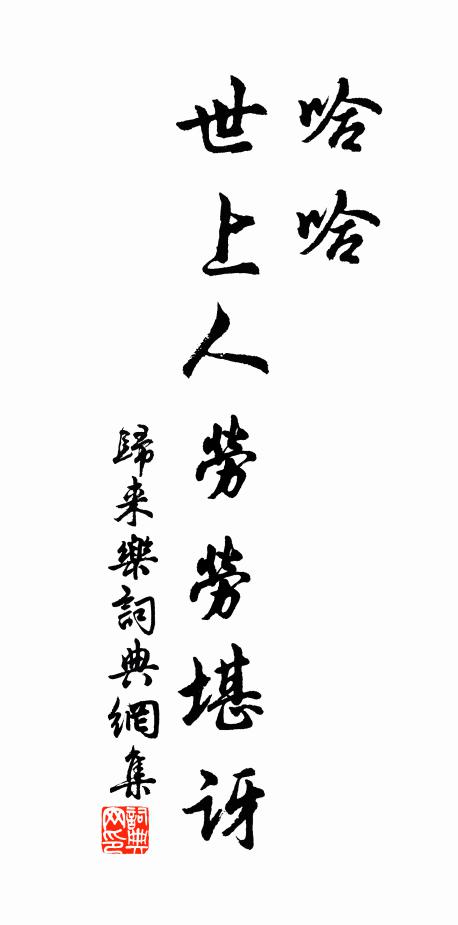 哈哈
世上人勞勞堪訝
歸来樂詞典網集
詞典网印